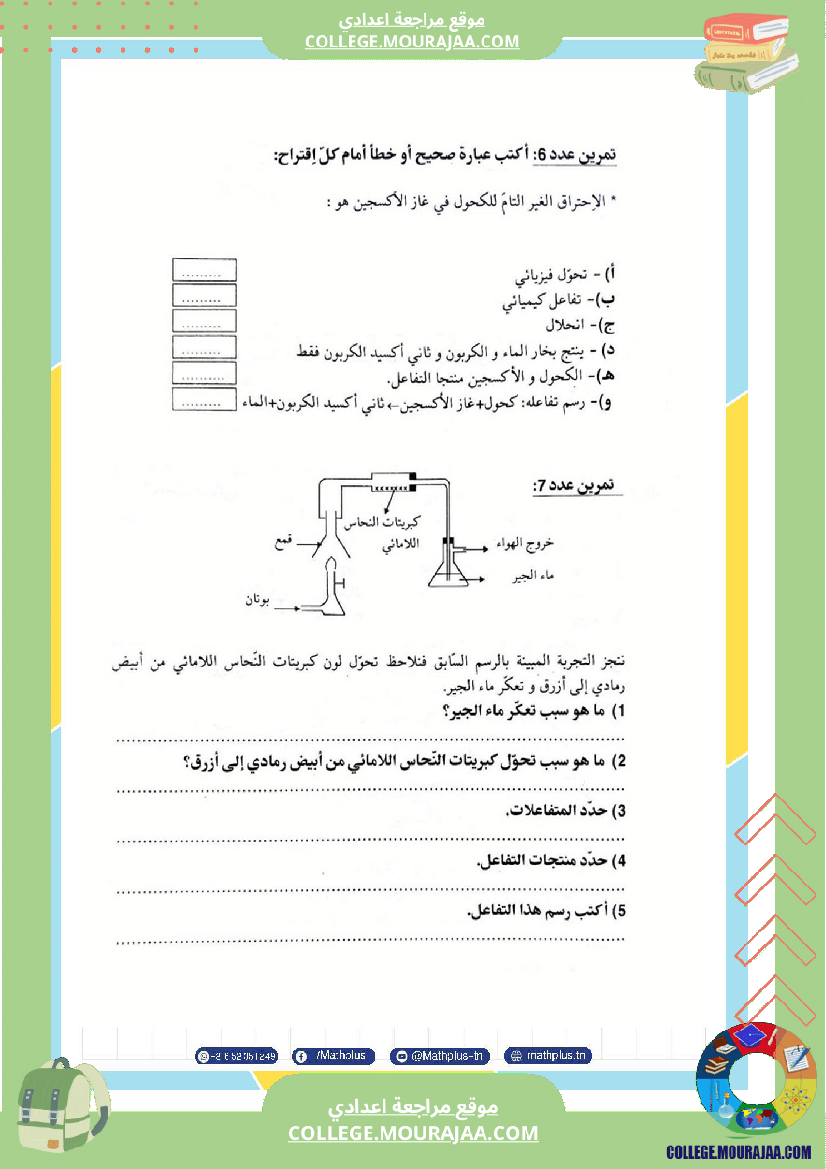 موقع مراجعة اعدادي
COLLEGE.MOURAJAA.COM
تمرين عدد 6: أكتب عبارة صحيح أو خطأ أمام كلّ إقتراح:
* الإحتراق الغير التامّ للكحول في غاز الأكسجين هو :
أ)- تحوّل فيزيائي .........
ب)- تفاعل كيميائي .........
ج)- انحلال .........
د)- ينتج بخار الماء و الكربون و ثاني أكسيد الكربون فقط .........
هـ)- الكحول و الأكسجين منتجا التفاعل. .........
و)- رسم تفاعله: كحول+غاز الأكسجين←ثاني أكسيد الكربون+الماء .........
تمرين عدد 7:
كبريتات النحاس
اللامائي
قمع
خروج الهواء
ماء الجير
بوتان
ننجز التجربة المبينة بالرسم السّابق فنلاحظ تحوّل لون كبريتات النّحاس اللامائي من أبيض
رمادي إلى أزرق و تعكّر ماء الجير.
1) ما هو سبب تعكّر ماء الجير؟
2) ما هو سبب تحوّل كبريتات النّحاس اللامائي من أبيض رمادي إلى أزرق؟
3) حدّد المتفاعلات.
4) حدّد منتجات التفاعل.
5) أكتب رسم هذا التفاعل.
/Mathplus
@Mathplus-tn
mathplus.tn
موقع مراجعة اعدادي
COLLEGE.MOURAJAA.COM
COLLEGE.MOURAJAA.COM